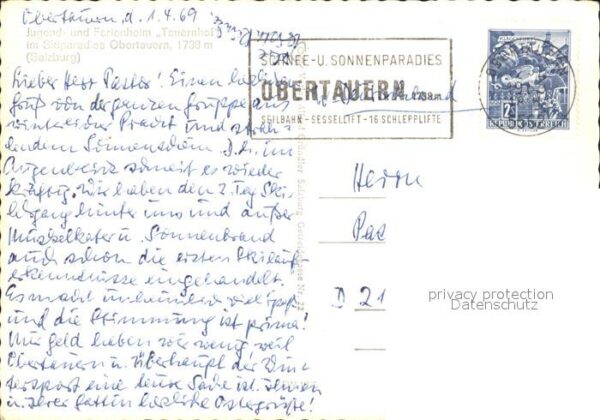 Obertauern, d. 1.4.69
Jugend- und Ferienheim „Tauernhof"
im Skiparadies Obertauern, 1738 m
(Salzburg)
Lieber Herr Pastor! Einen herzlichen
Gruß von der ganzen Gruppe aus
winterlicher Pracht und strah-
lendem Sonnenschein. D.h. im
Augenblick schneit es wieder
kräftig. Wir haben den 2. Tag Ski-
lehrgang hinter uns und außer
Muskelkater u. Sonnenbrand
auch schon die ersten Skilauf-
erkenntnisse eingehandelt.
Es macht unheimlich viel Spaß
und die Stimmung ist prima!
Nur Geld haben wir wenig weil
Obertauern u. überhaupt der Win-
tersport eine teure Sache ist. Ihnen
u. Ihrer Gattin herzliche Ostergrüße!
SCHNEE-U. SONNENPARADIES
OBERTAUERN 1738m
SEILBAHN - SESSELLIFT - 16 SCHLEPPLIFTE
REPUBLIK ÖSTERREICH
Herrn
Pas
D 21
privacy protection
Datenschutz